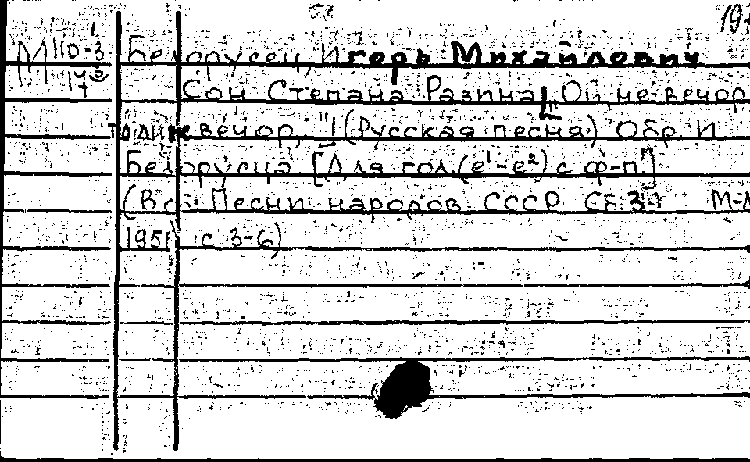 М110-3 Белорусец, Игорь Михайлович
Сон Степана Разина [„Ой, не вечор,
то ли не вечор,"] (Русская песня) Обр. И.
Белорусца [Для гол. (e¹-e²) с ф-п.]
(В сб. Песни народов СССР Сб. 3. М-Л
1951 с. 3-6)